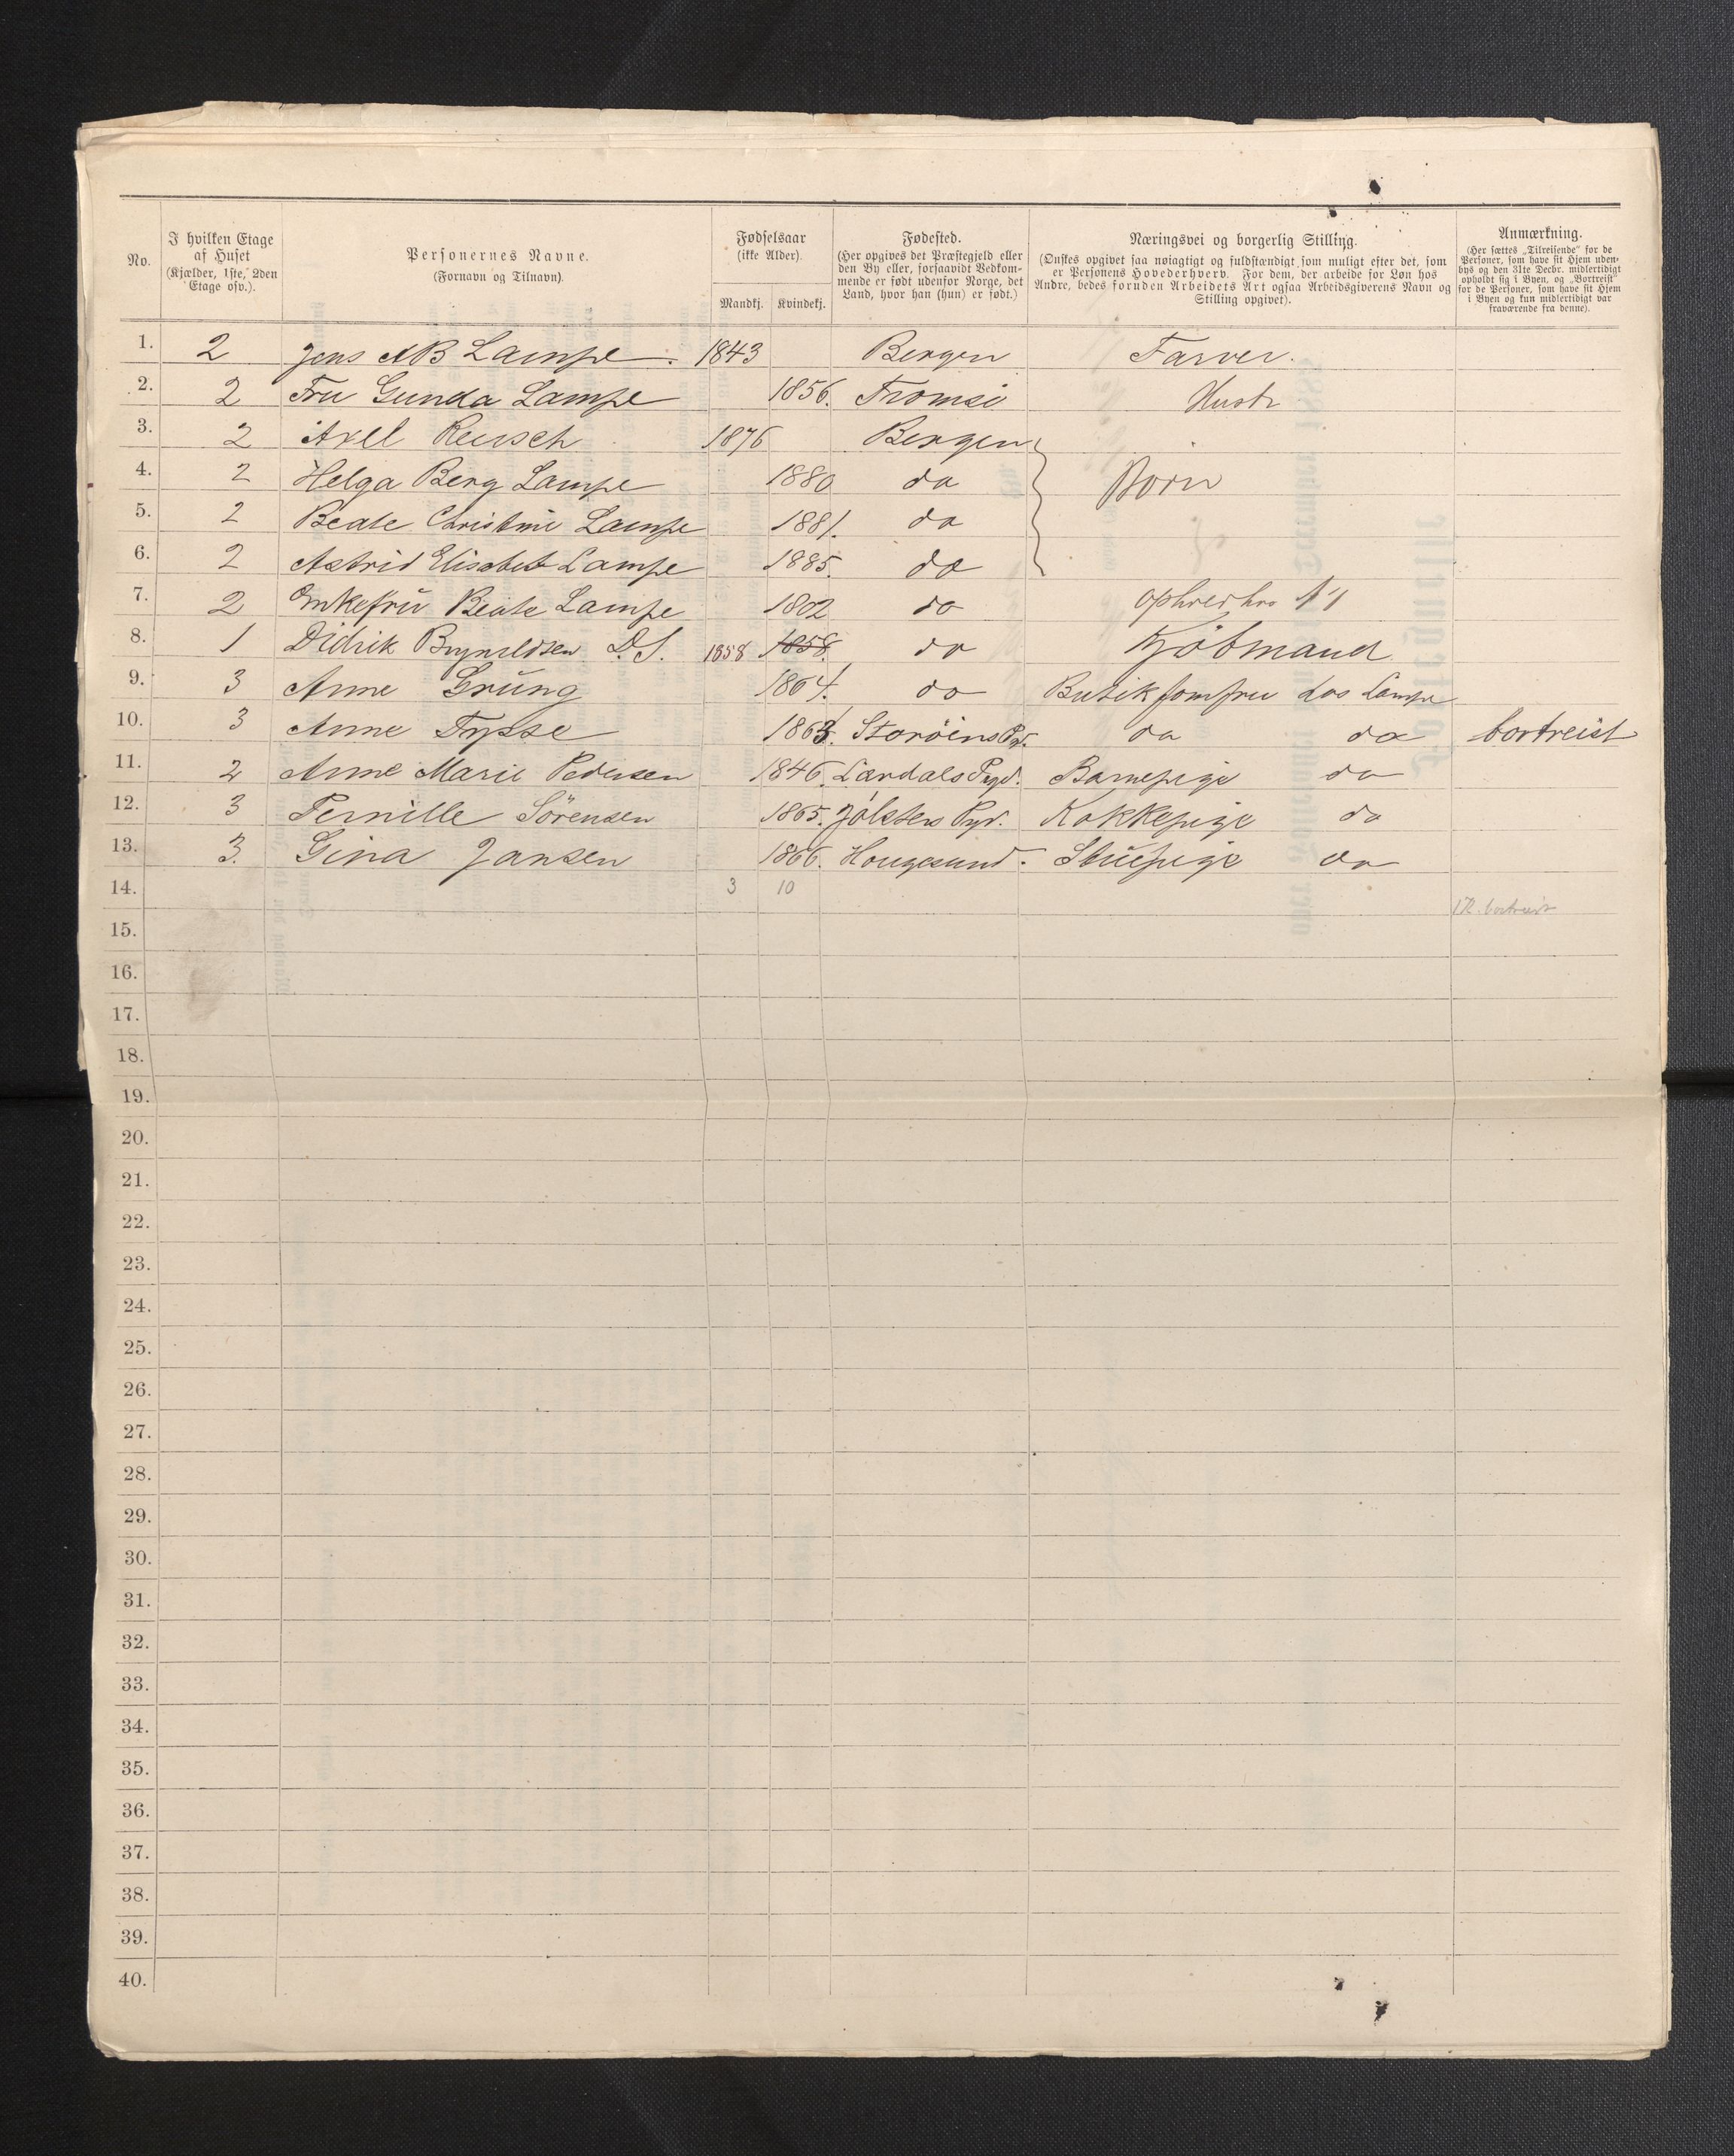 No.
I hvilken Etage af Huset (Kjælder, 1ste, 2den Etage osv.).
Personernes Navne. (Fornavn og Tilnavn).
Fødselsaar (ikke Alder).
Mandkj. Kvindekj.
Fødested. (Her opgives det Præstegjeld eller den By eller, forsaavidt Vedkommende er født udenfor Norge, det Land, hvor han (hun) er født.)
Næringsvei og borgerlig Stilling. (Ønskes opgivet saa nøiagtigt og fuldstændigt som muligt efter det, som er Personens Hovederhverv. For dem, der arbeide for Løn hos Andre, bedes foruden Arbeidets Art ogsaa Arbeidsgiverens Navn og Stilling opgivet).
Anmærkning. (Her sættes „Tilreisende“ for de Personer, som have sit Hjem udenbys og den 31te Decbr. midlertidigt opholdt sig i Byen, og „Bortreist“ for de Personer, som have sit Hjem i Byen og kun midlertidigt var fraværende fra denne).
1. 2 Jens AB Lampe. 1843 Bergen Farver.
2. 2 Fru Gunda Lampe 1856. Tromsö Hustr
3. 2 Axel Reusch 1876 Bergen
4. 2 Helga Berg Lampe 1880 do Börn
5. 2 Beate Christine Lampe 1881. do
6. 2 Astrid Elisabet Lampe 1885. do
7. 2 Enkefru Beate Lampe 1802 do
8. 1 Didrik Brynildsen D.S. 1858 1858. do Kjöbmand
9. 3 Anne Grung 1864. do Butikjomfru hos Lampe
10. 3 Anne Tysse 1863. Storöens Pgd. do do bortreist
11. 2 Anne Marie Pedersen 1846. Lærdals Pgd. Barnepige do
12. 3 Pernille Sörensen 1865. Jölsters Pgd. Kokkepige do
13. 3. Gina Jansen 1866. Hougesund. Stuepige do
14. 3 10
1 K. bortreist
15.
16.
17.
18.
19.
20.
21.
22.
23.
24.
25.
26.
27.
28.
29.
30.
31.
32.
33.
34.
35.
36.
37.
38.
39.
40.